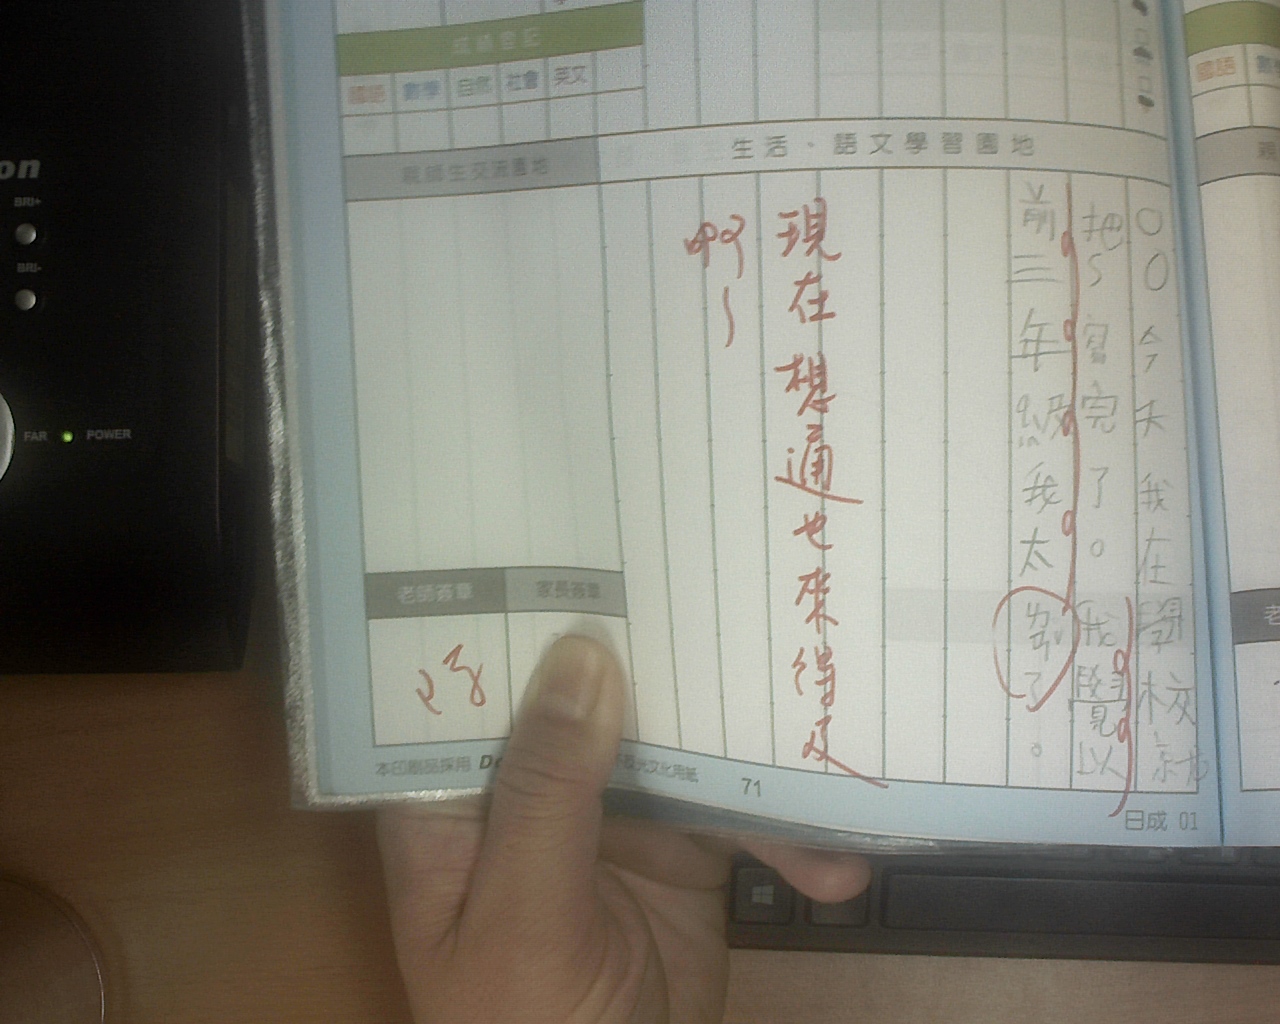 成績登記
國語 數學 自然 社會 英文
親師生交流園地
生活、語文學習園地
○○今天我在學校就
把5寫完了。我覺以
前三年級我太
了。
現在想通也來得及
啊~
老師簽章
家長簽章
本印刷品採用
光文化用紙
71
日成 01
國語
親
老
on
BRI+
BRI-
FAR
POWER